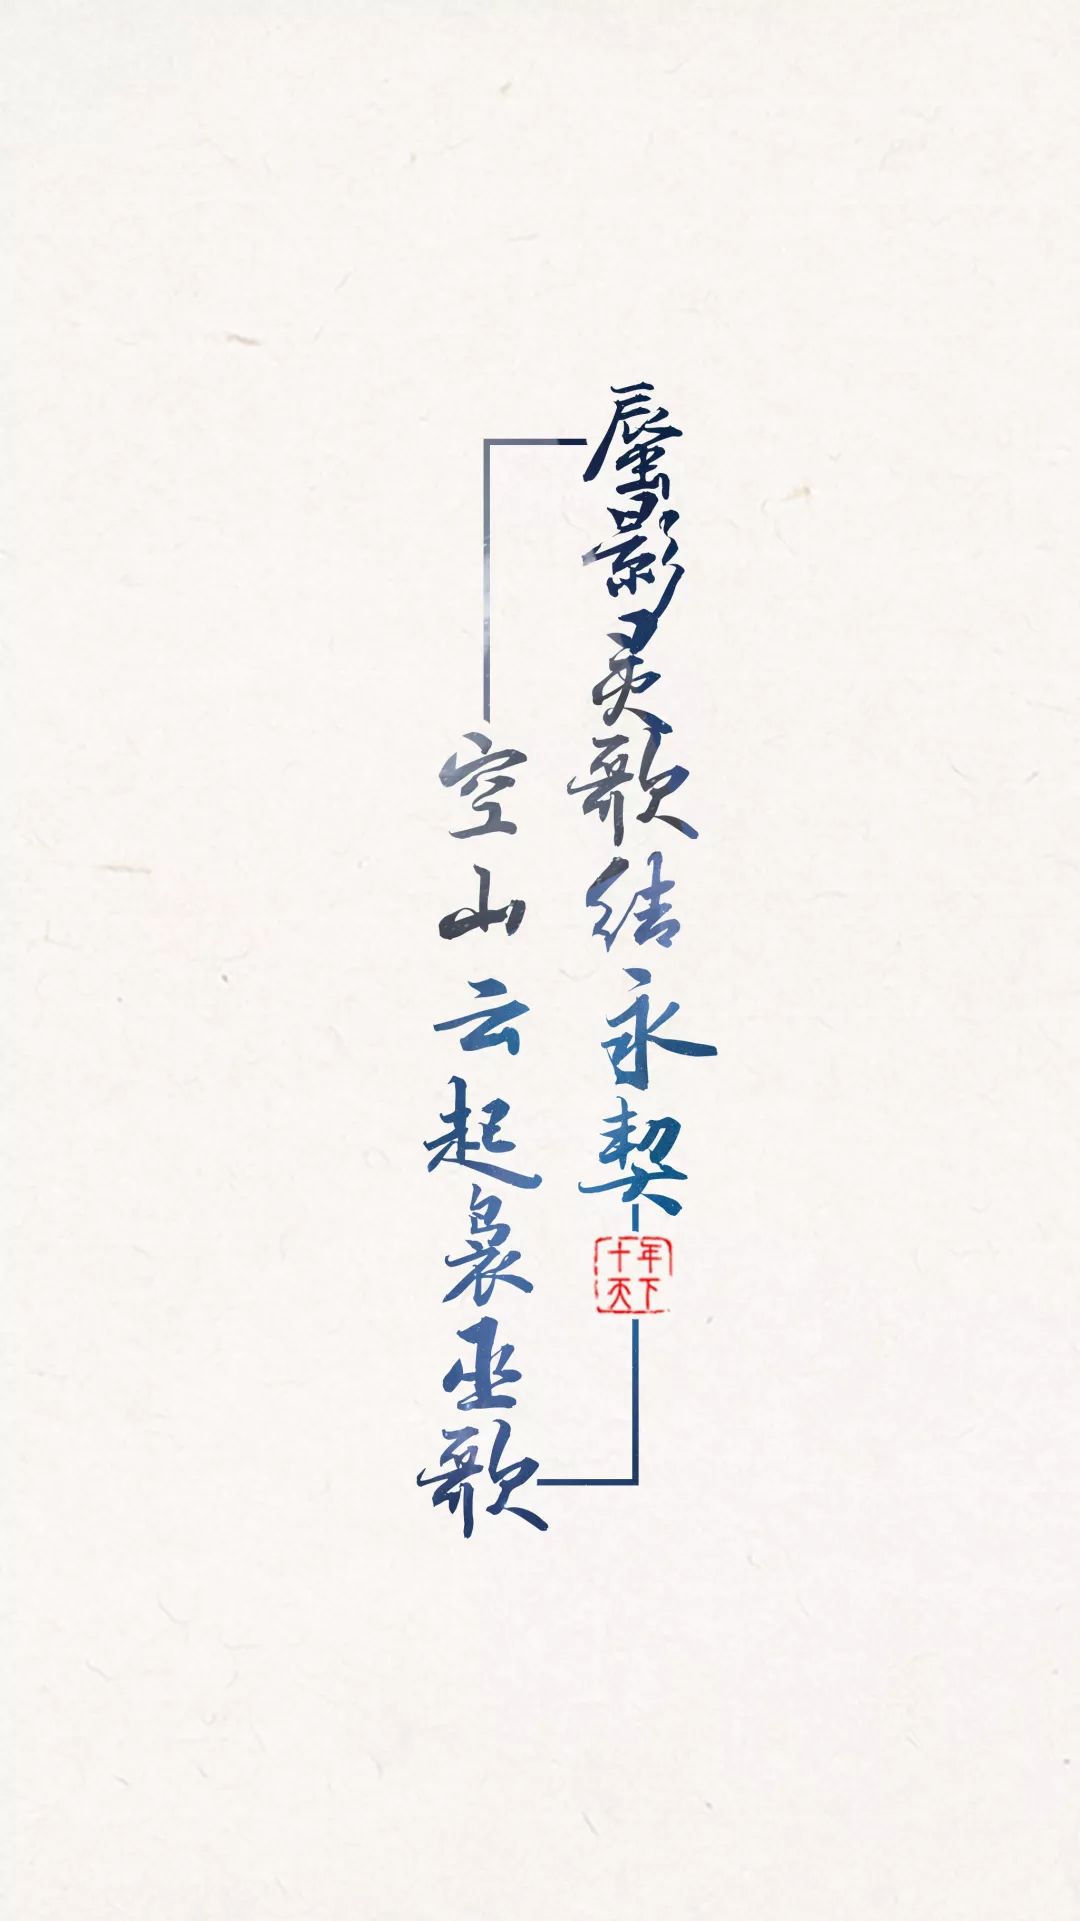 蜃影灵歌结永契
空山云起袅巫歌
十年
天下